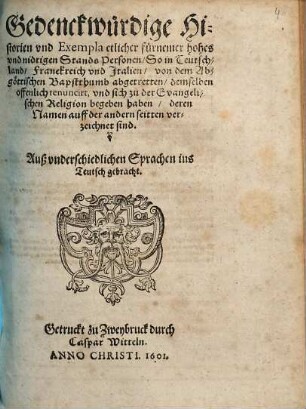 Gedenckwürdige Hi-
storien vnd Exempla etlicher fürnemer hohes
vnd nidrigen Stands Personen/ So in Teutsch-
land/ Franckreich vnd Italien/ von dem Ab-
göttischen Bapsthumb abgetretten/ demselben
offenlich renuncirt, vnd sich zu der Evangeli-
schen Religion begeben haben/ deren
Namen auff der andern seitten ver-
zeichnet sind.
Auß vnderschiedlichen Sprachen ins
Teutsch gebracht.
Getruckt zu Zweybruck durch
Caspar Witteln.
ANNO CHRISTI. 1601.